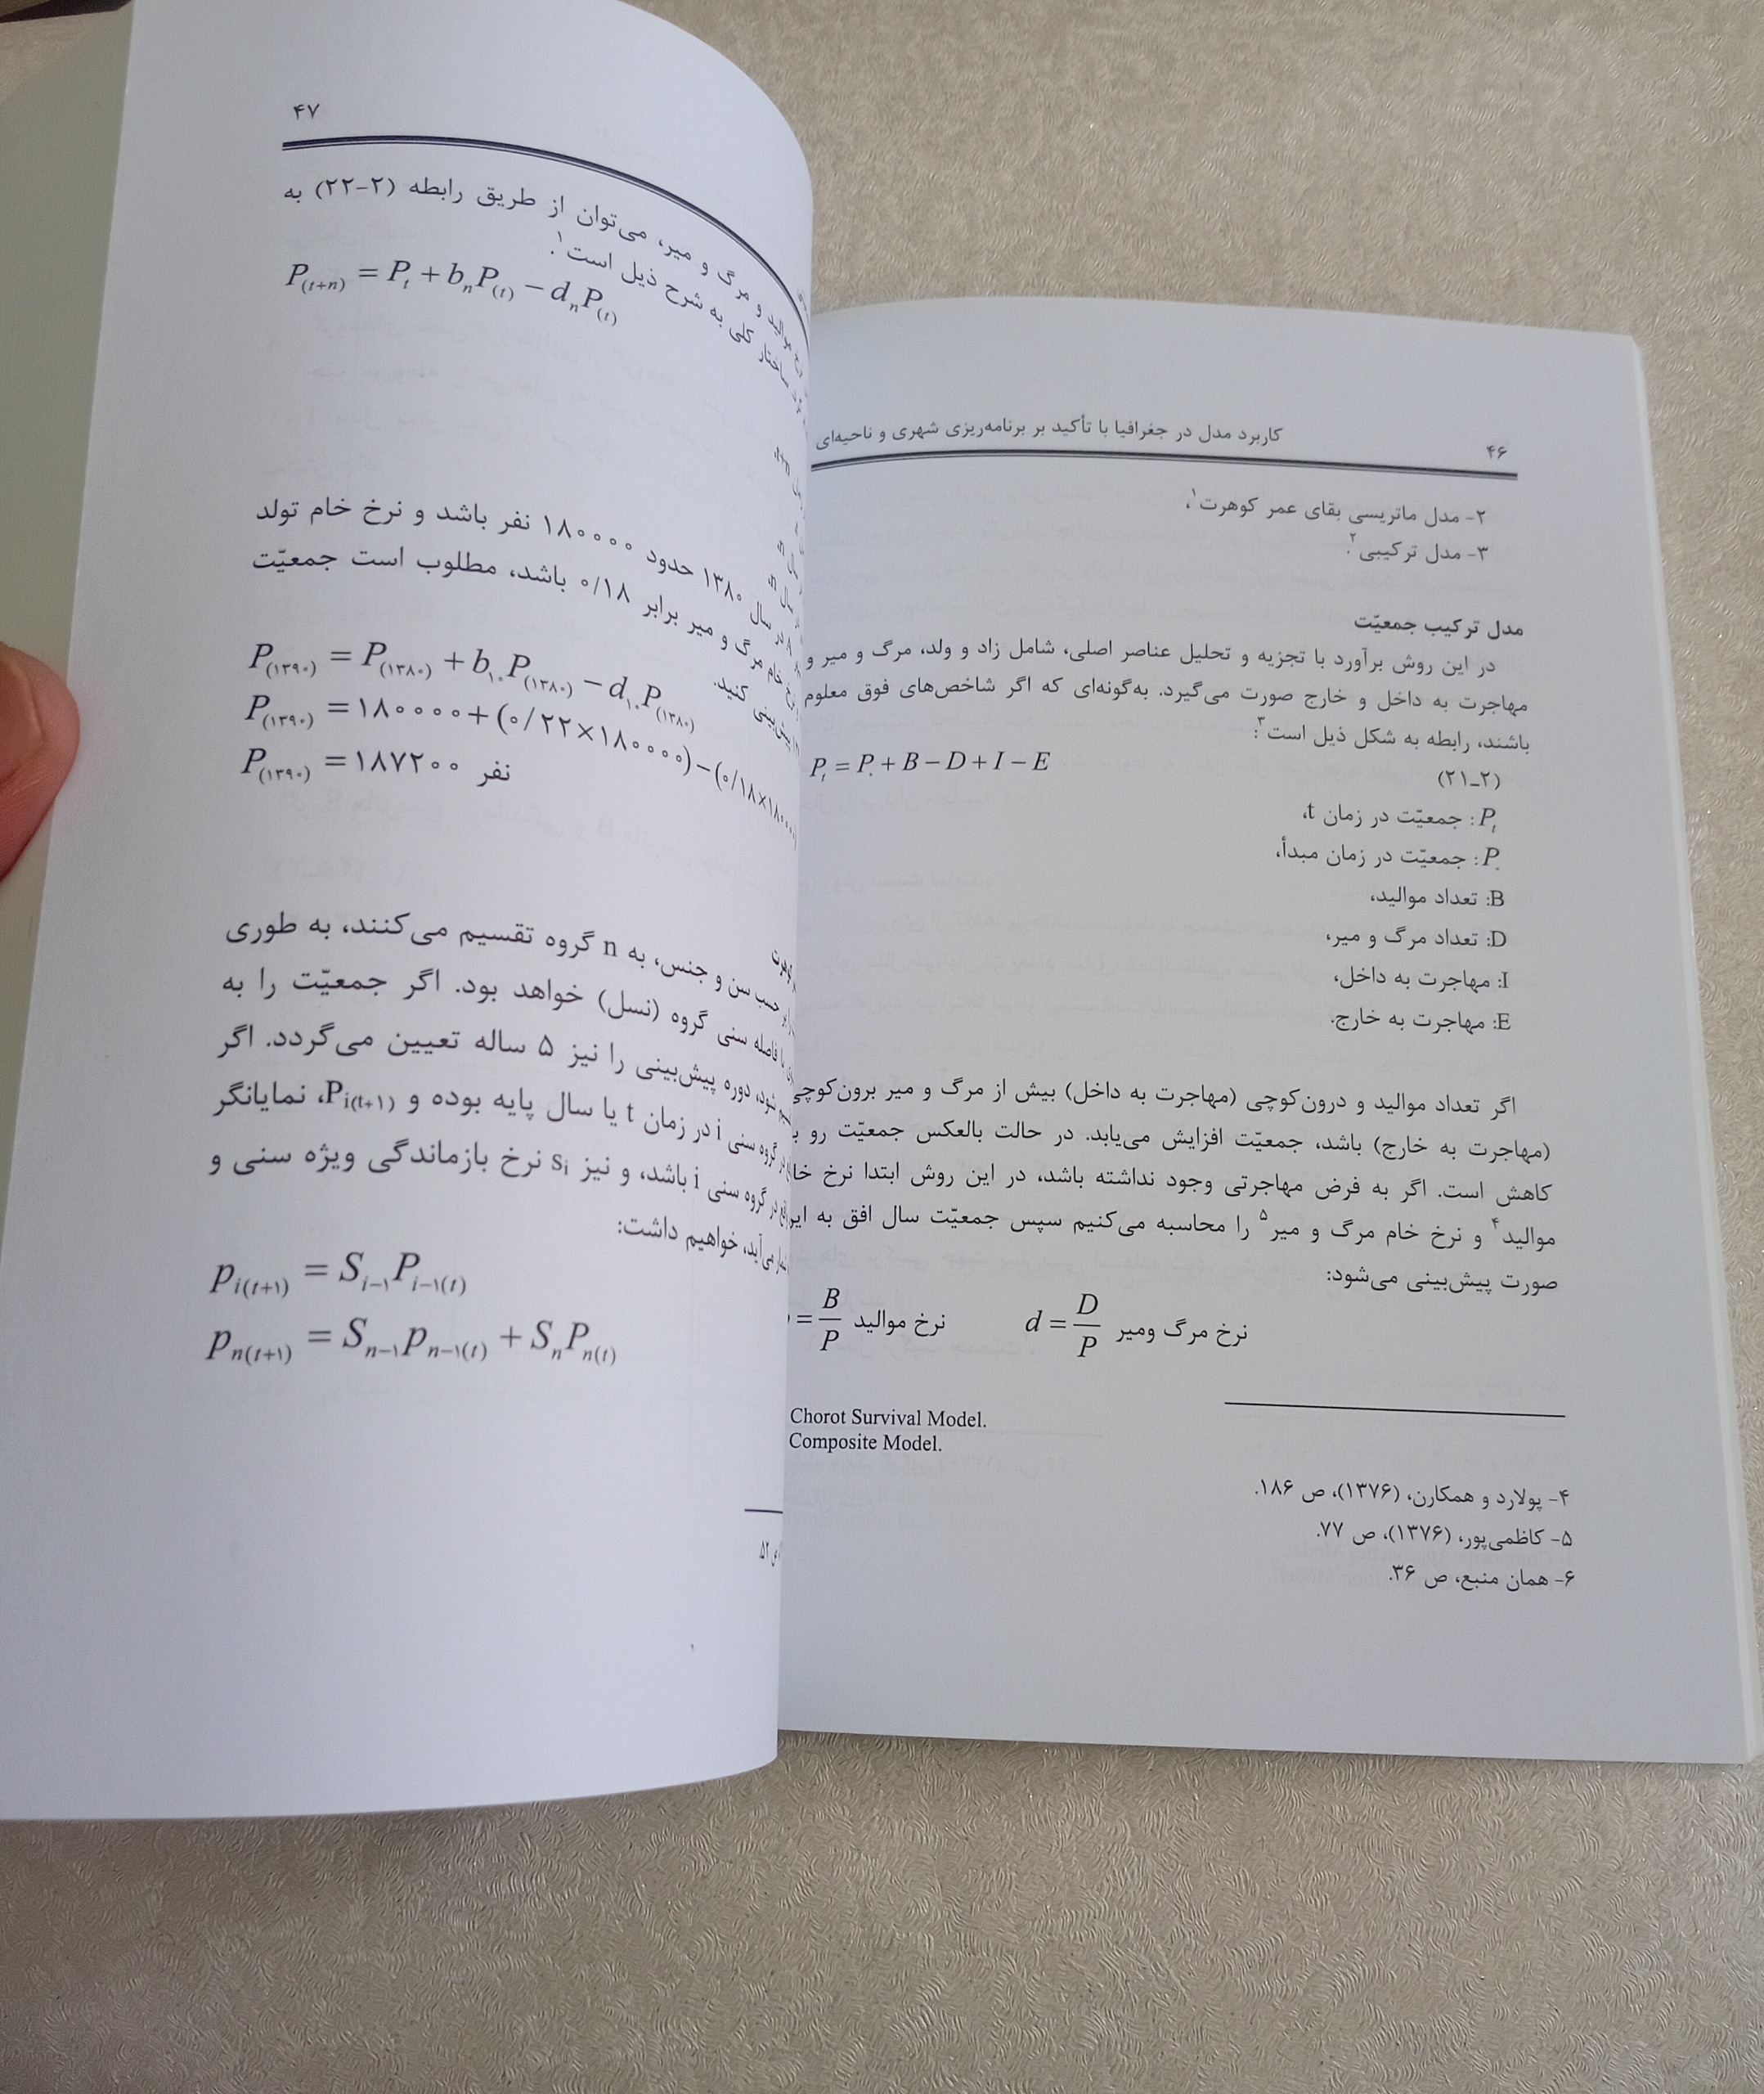 ۴۶
کاربرد مدل در جغرافیا با تأکید بر برنامه‌ریزی شهری و ناحیه‌ای
۲- مدل ماتریسی بقای عمر کوهرت۱،
۳- مدل ترکیبی۲.
مدل ترکیب جمعیّت
در این روش برآورد با تجزیه و تحلیل عناصر اصلی، شامل زاد و ولد، مرگ و میر و
مهاجرت به داخل و خارج صورت می‌گیرد. به‌گونه‌ای که اگر شاخص‌های فوق معلوم
باشند، رابطه به شکل ذیل است۳:
(۲ـ۲۱)
P_t = P_۰ + B − D + I − E
P_t: جمعیّت در زمان t،
P_۰: جمعیّت در زمان مبدأ،
B: تعداد موالید،
D: تعداد مرگ و میر،
I: مهاجرت به داخل،
E: مهاجرت به خارج.
اگر تعداد موالید و درون‌کوچی (مهاجرت به داخل) بیش از مرگ و میر برون‌کوچی
(مهاجرت به خارج) باشد، جمعیّت افزایش می‌یابد. در حالت بالعکس جمعیّت رو
کاهش است. اگر به فرض مهاجرتی وجود نداشته باشد، در این روش ابتدا نرخ
موالید۴ و نرخ خام مرگ و میر۵ را محاسبه می‌کنیم سپس جمعیّت سال افق به این
صورت پیش‌بینی می‌شود:
نرخ مرگ ومیر d = D/P نرخ موالید = B/P
Chorot Survival Model.
Composite Model.
۴- پولارد و همکارن، (۱۳۷۶)، ص ۱۸۶.
۵- کاظمی‌پور، (۱۳۷۶)، ص ۷۷.
۶- همان منبع، ص ۳۶.
۴۷
موالید و مرگ و میر، می‌توان از طریق رابطه (۲-۲۲) به
ساختار کلی به شرح ذیل است۱.
P_(t+n) = P_t + b_n P_(t) − d_n P_(t)
در سال ۱۳۸۰ حدود ۱۸۰۰۰۰ نفر باشد و نرخ خام تولد
نرخ خام مرگ و میر برابر ۰/۱۸ باشد، مطلوب است جمعیّت
پیش‌بینی کنید.
P_(۱۳۹۰) = P_(۱۳۸۰) + b_۱۰ P_(۱۳۸۰) − d_۱۰ P_(۱۳۸۰)
P_(۱۳۹۰) = ۱۸۰۰۰۰+(۰/۲۲×۱۸۰۰۰۰)−(۰/۱۸×۱۸۰۰۰۰
P_(۱۳۹۰) = ۱۸۷۲۰۰ نفر
کوهرت
بر حسب سن و جنس، به n گروه تقسیم می‌کنند، به طوری
با فاصله سنی گروه (نسل) خواهد بود. اگر جمعیّت را به
شود، دوره پیش‌بینی را نیز ۵ ساله تعیین می‌گردد. اگر
در گروه سنی i در زمان t یا سال پایه بوده و P_i(t+۱)، نمایانگر
در گروه سنی i باشد، و نیز s_i نرخ بازماندگی ویژه سنی و
می‌آید، خواهیم داشت:
p_i(t+۱) = S_i−۱ P_i−۱(t)
p_n(t+۱) = S_n−۱ p_n−۱(t) + S_n P_n(t)
ص ۵۲